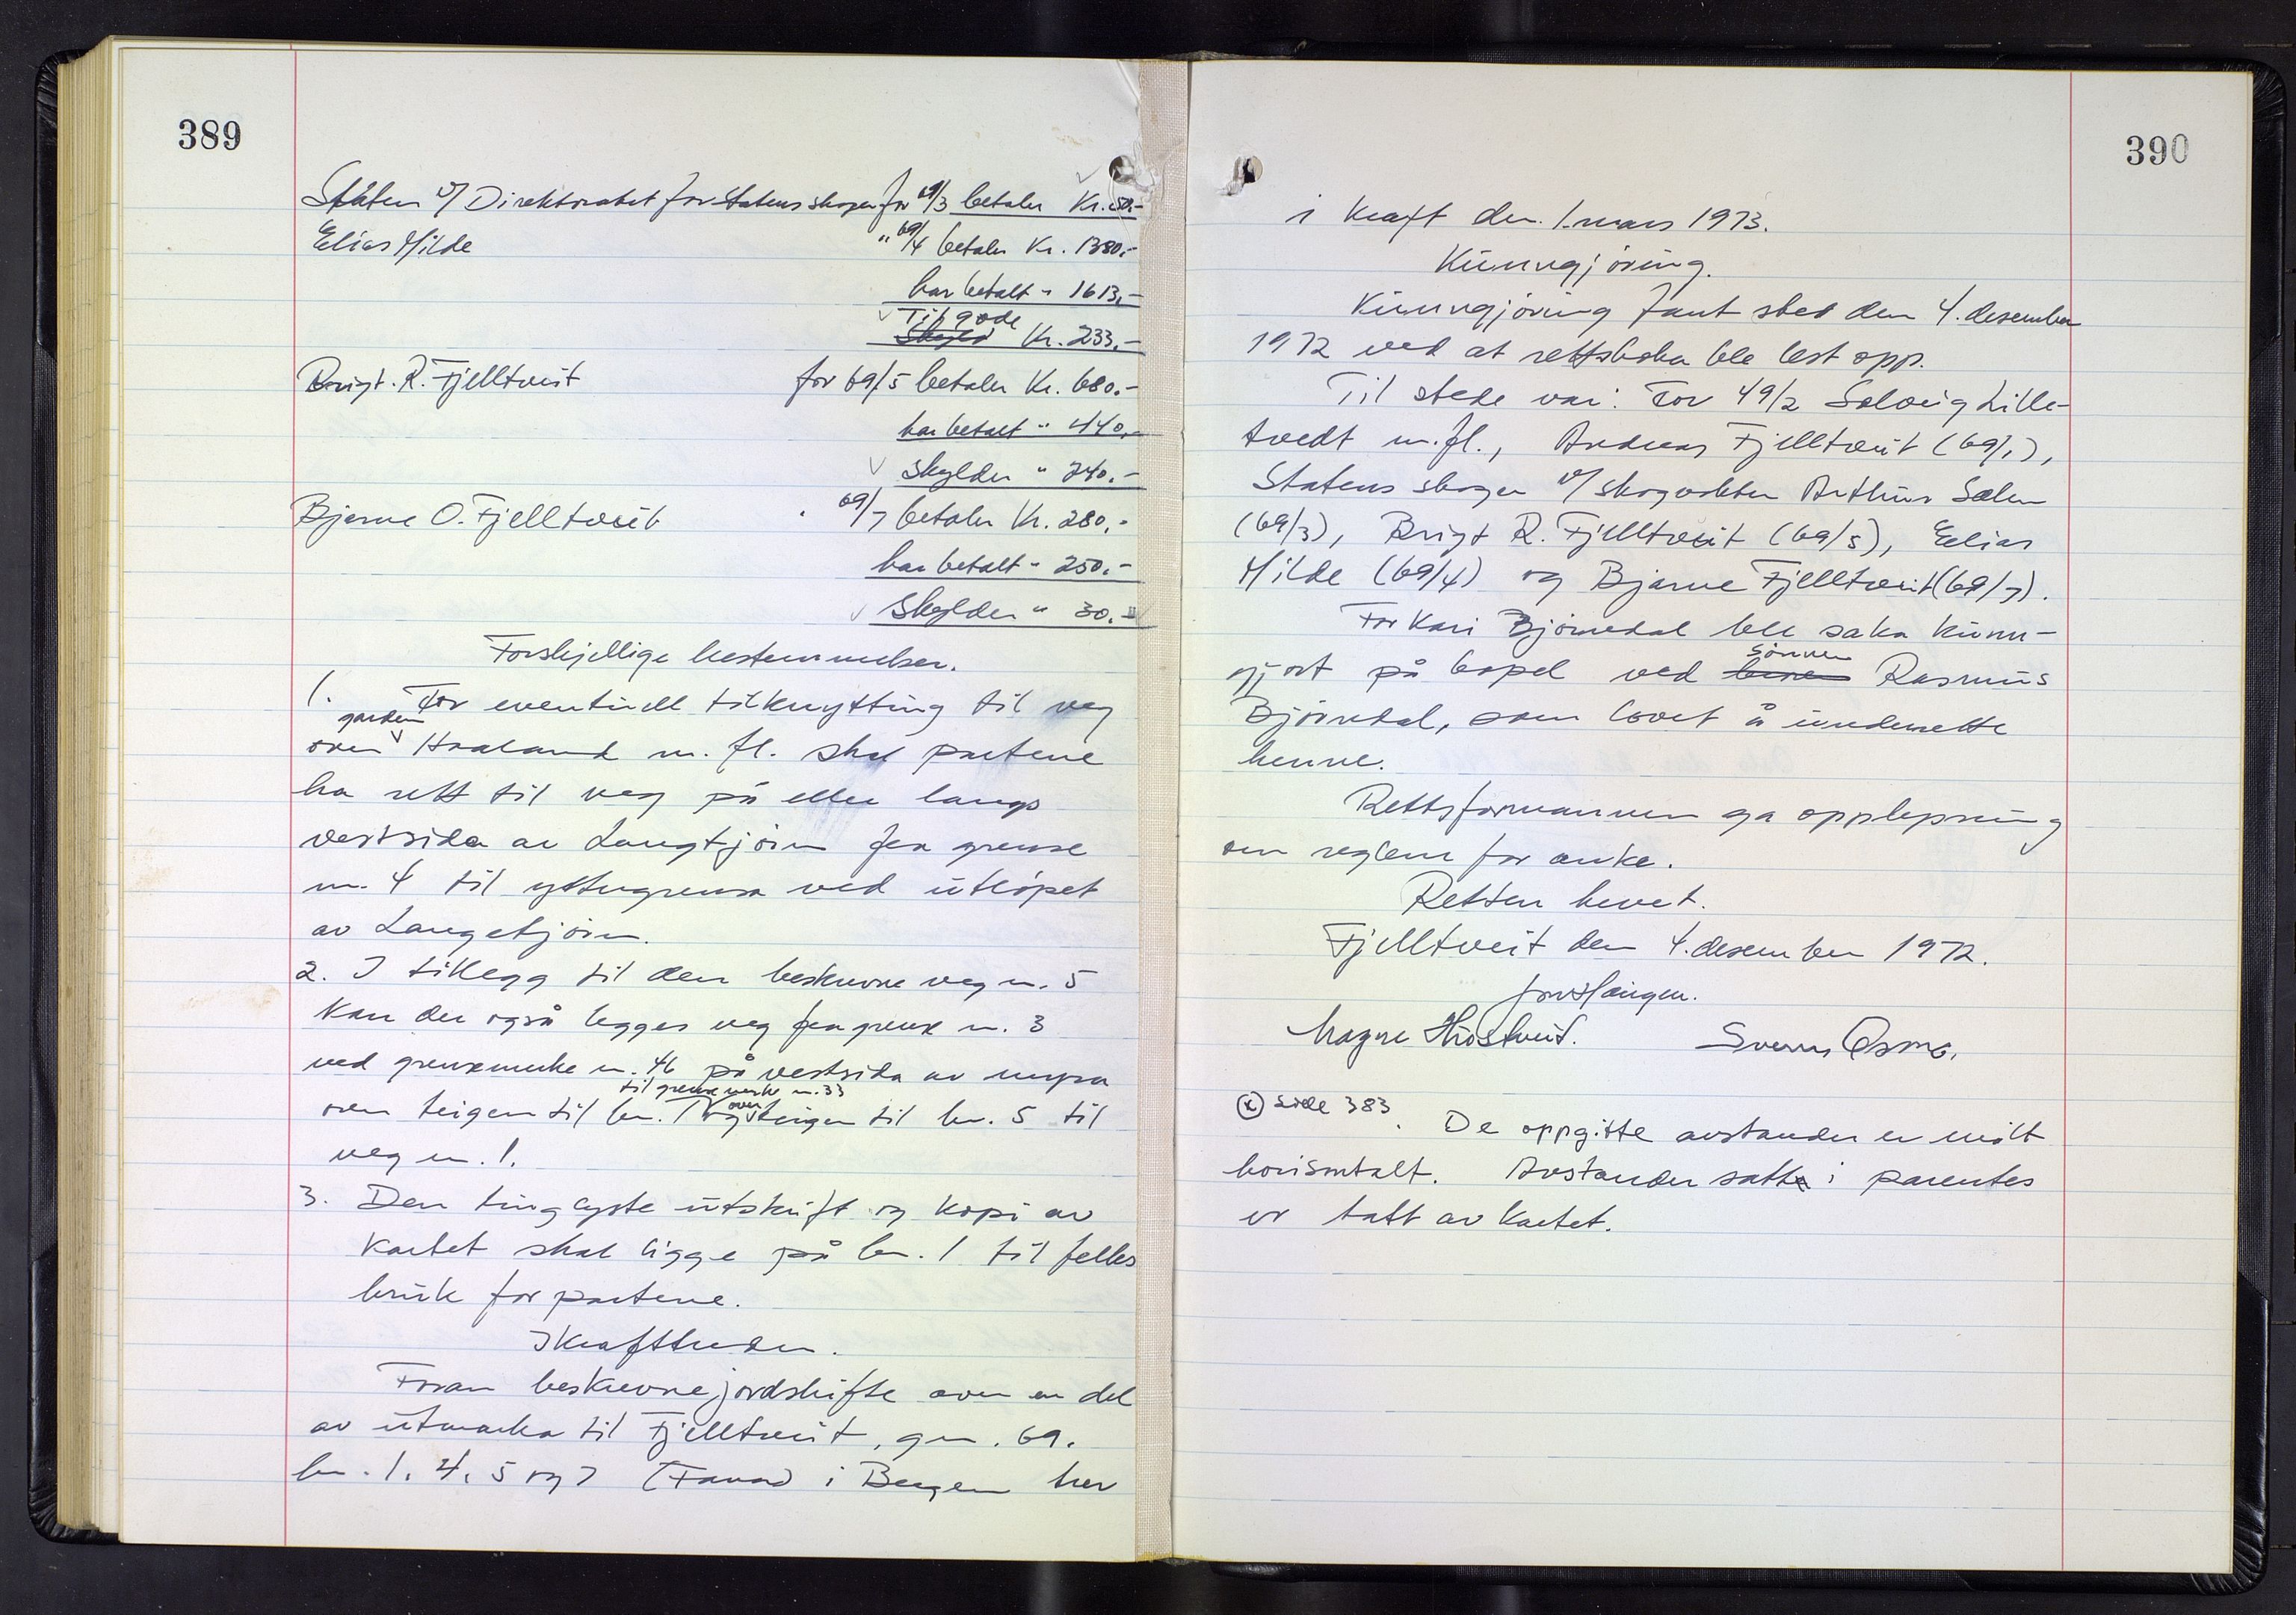 389
Staten v/ Direktoratet for statens skoger for 69/3 betaler Kr. 50.-
Elias Milde " 69/4 betaler Kr. 1380.-
har betalt " 1613.-
Til gode
Skyld Kr. 233.-
Brigt. R. Fjelltveit for 69/5 betaler Kr. 680.-
har betalt " 440.-
Skylder " 240.-
Bjarne O. Fjelltveit " 69/7 betaler Kr. 280.-
har betalt " 250.-
Skylder " 30.-
Forskjellige bestemmelser.
1. For eventuell tilknytting til veg
over garden Haaland m. fl. skal partene
ha rett til veg på eller langs
vestsida av Langtjørn fra grense
nr. 4 til yttergrensa ved utløpet
av Langetjørn.
2. I tillegg til den beskrevne veg nr. 5
kan der også legges veg fra grense nr. 3
ved grensemerke nr. 46 på vestsida av myra
over teigen til bn. 1 til grensemerke nr. 33 og over teigen til bn. 5 til
veg nr. 1.
3. Den tinglyste utskrift og kopi av
kartet skal ligge på bn. 1 til felles
bruk for partene.
Ikrafttreden.
Foran beskrevne jordskifte over en del
av utmarka til Fjelltveit, gnr. 69.
bn. 1, 4, 5 og 7 (Fana) i Bergen trer
390
i kraft den. 1. mars 1973.
Kunngjøring.
Kunngjøring fant sted den 4. desember
1972 ved at rettsboka ble lest opp.
Til stede var: For 49/2 Solveig Lille-
tvedt m.fl., Andreas Fjelltveit (69/1),
Statens skoger v/ skogvokter Arthur Sælen
(69/3), Brigt R. Fjelltveit (69/5), Elias
Milde (69/4) og Bjarne Fjelltveit (69/7).
For Kari Bjørndal ble saka kunn-
gjort på bopel ved sønnen Rasmus
Bjørndal, som lovet å underrette
henne.
Rettsformannen ga opplysning
om reglene for anke.
Retten hevet.
Fjelltveit den 4. desember 1972.
Magne Hrostveit.
(x) side 383. De oppgitte avstander er målt
horisontalt. Avstander satt i parentes
er tatt av kartet.